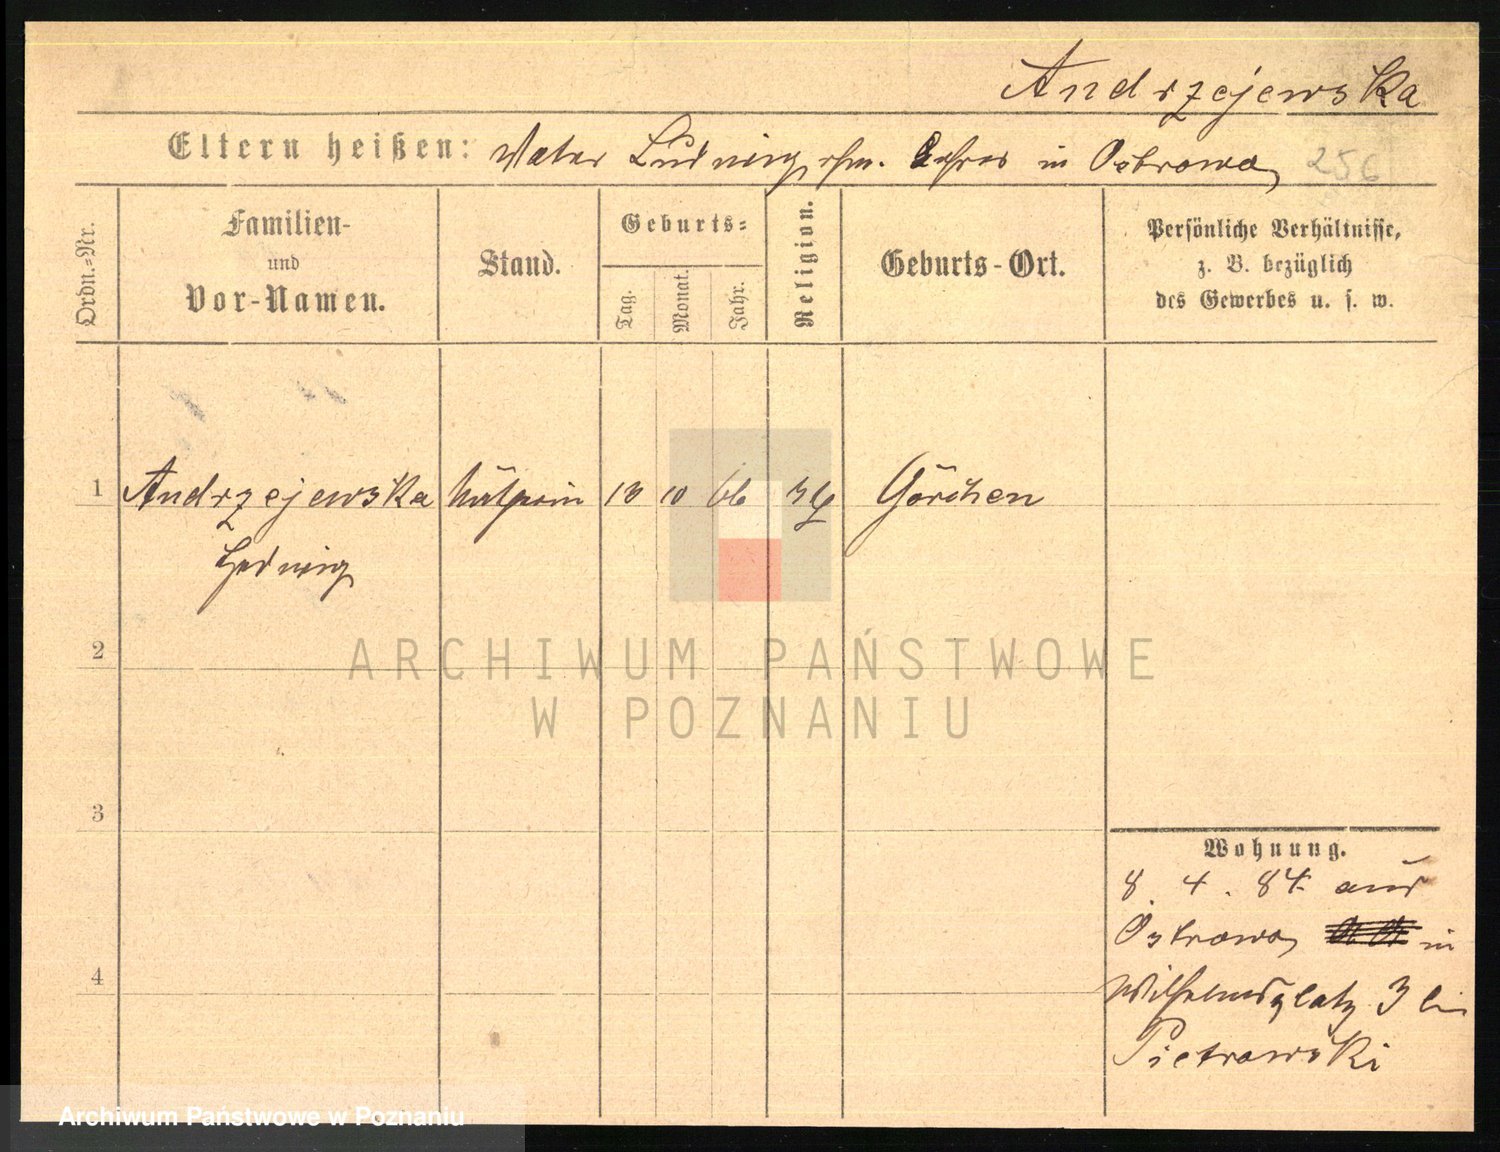 Andrzejewska
Eltern heißen: Vater Ludwig, ehm. Lehrer in Ostrowo
256
Ordn.-Nr.
Familien-
und
Vor-Namen.
Stand.
Geburts-
Tag.
Monat.
Jahr.
Religion.
Geburts-Ort.
Persönliche Verhältnisse,
z. B. bezüglich
des Gewerbes u. s. w.
1 Andrzejewska 10 Görchen
Hedwig
2
3
4
Wohnung.
8. 4. 84 aus
Ostrowo in
Wilhelmsplatz 3 bei
Pietrowski
ARCHIWUM PAŃSTWOWE
W POZNANIU
Archiwum Państwowe w Poznaniu